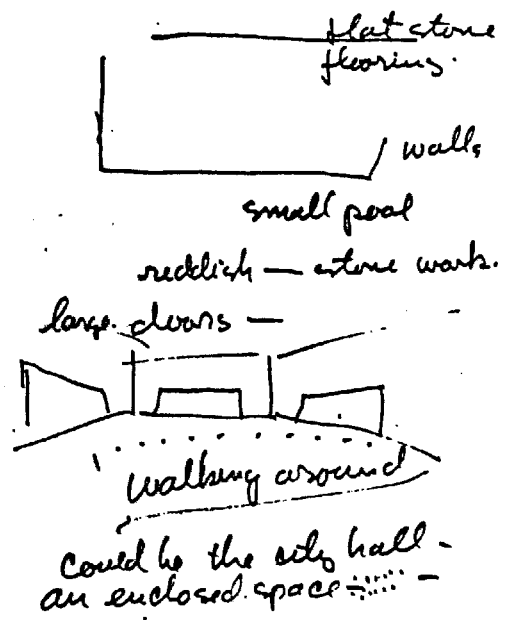 flat stone
flooring.
walls
small pool
reddish — stone work.
large doors —
walking around
could be the city hall -
an enclosed space -